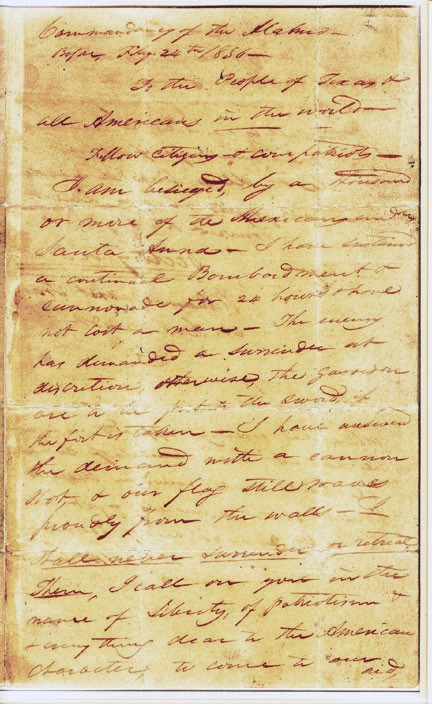 Commandancy of the Alamo—
Bejar, Fby. 24th 1836—
To the People of Texas &
all Americans in the world—
Fellow Citizens & compatriots—
I am besieged, by a thousand
or more of the Mexicans under
Santa Anna— I have sustained
a continual Bombardment &
cannonade for 24 hours & have
not lost a man— The enemy
has demanded a surrender at
discretion, otherwise, the garrison
are to be put to the sword, if
the fort is taken— I have answered
the demand with a cannon
shot, & our flag still waves
proudly from the walls— I
shall never surrender or retreat
Then, I call on you in the
name of Liberty, of patriotism &
& everything dear to the American
character, to come to our aid,